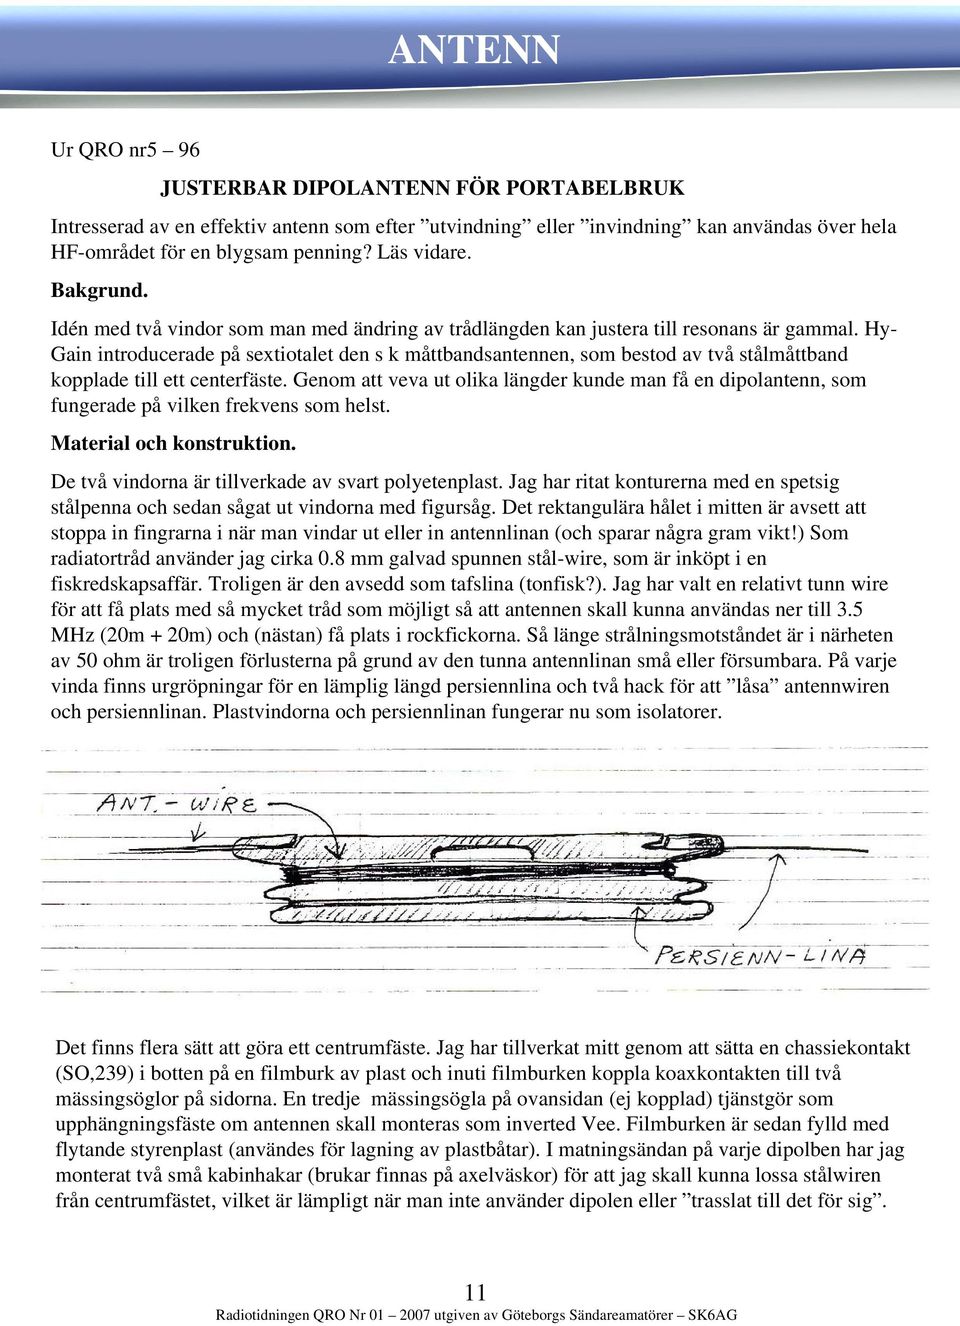 ANTENN
Ur QRO nr5 – 96
JUSTERBAR DIPOLANTENN FÖR PORTABELBRUK
Intresserad av en effektiv antenn som efter ”utvindning” eller ”invindning” kan användas över hela
HF-området för en blygsam penning? Läs vidare.
Bakgrund.
Idén med två vindor som man med ändring av trådlängden kan justera till resonans är gammal. Hy-
Gain introducerade på sextiotalet den s k måttbandsantennen, som bestod av två stålmåttband
kopplade till ett centerfäste. Genom att veva ut olika längder kunde man få en dipolantenn, som
fungerade på vilken frekvens som helst.
Material och konstruktion.
De två vindorna är tillverkade av svart polyetenplast. Jag har ritat konturerna med en spetsig
stålpenna och sedan sågat ut vindorna med figursåg. Det rektangulära hålet i mitten är avsett att
stoppa in fingrarna i när man vindar ut eller in antennlinan (och sparar några gram vikt!) Som
radiatortråd använder jag cirka 0.8 mm galvad spunnen stål-wire, som är inköpt i en
fiskredskapsaffär. Troligen är den avsedd som tafslina (tonfisk?). Jag har valt en relativt tunn wire
för att få plats med så mycket tråd som möjligt så att antennen skall kunna användas ner till 3.5
MHz (20m + 20m) och (nästan) få plats i rockfickorna. Så länge strålningsmotståndet är i närheten
av 50 ohm är troligen förlusterna på grund av den tunna antennlinan små eller försumbara. På varje
vinda finns urgröpningar för en lämplig längd persiennlina och två hack för att ”låsa” antennwiren
och persiennlinan. Plastvindorna och persiennlinan fungerar nu som isolatorer.
ANT.-WIRE
PERSIENN-LINA
Det finns flera sätt att göra ett centrumfäste. Jag har tillverkat mitt genom att sätta en chassiekontakt
(SO,239) i botten på en filmburk av plast och inuti filmburken koppla koaxkontakten till två
mässingsöglor på sidorna. En tredje mässingsögla på ovansidan (ej kopplad) tjänstgör som
upphängningsfäste om antennen skall monteras som inverted Vee. Filmburken är sedan fylld med
flytande styrenplast (användes för lagning av plastbåtar). I matningsändan på varje dipolben har jag
monterat två små kabinhakar (brukar finnas på axelväskor) för att jag skall kunna lossa stålwiren
från centrumfästet, vilket är lämpligt när man inte använder dipolen eller ”trasslat till det för sig”.
11
Radiotidningen QRO Nr 01 – 2007 utgiven av Göteborgs Sändareamatörer – SK6AG